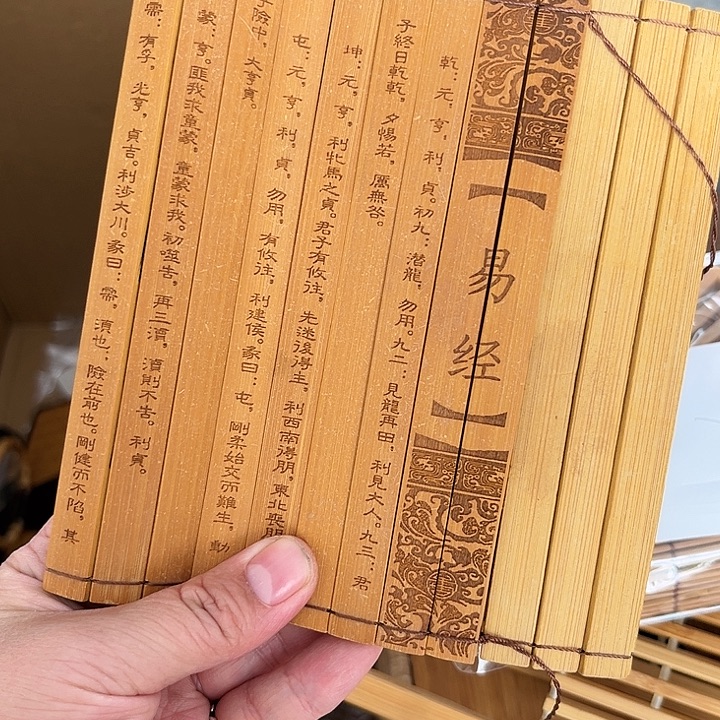 【易经】
乾：元，亨，利，貞。初九：潛龍，勿用。九二：見龍再田，利見大人。九三：君
子終日乾乾，夕惕若，厲無咎。
坤：元，亨，利牝馬之貞。君子有攸往，先迷後得主，利西南得朋，東北喪朋
屯：元，亨，利，貞，勿用，有攸往，利建侯。彖曰：屯，剛柔始交而難生，動
險中，大亨貞。
蒙：亨。匪我求童蒙，童蒙求我。初噬告，再三瀆，瀆則不告。利貞。
需：有孚，光亨，貞吉。利涉大川。彖曰：需，須也；險在前也。剛健而不陷，其